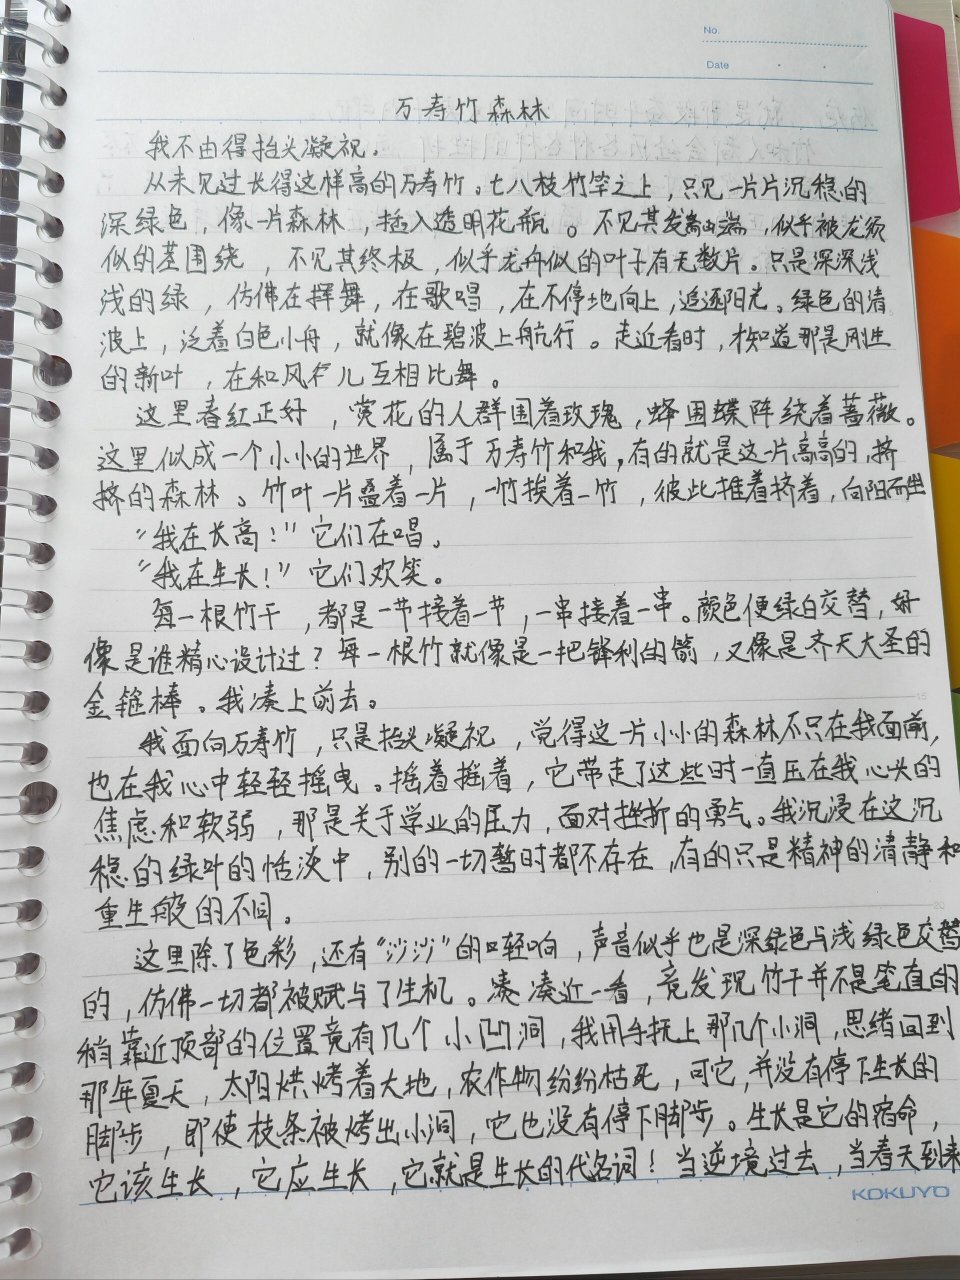 No.
Date
万寿竹森林
我不由得抬头凝视.
从未见过长得这样高的万寿竹。七八枝竹竿之上,只见一片片沉稳的
深绿色,像一片森林,插入透明花瓶。不见其发端,似乎被龙须
似的茎围绕,不见其终极,似乎龙舟似的叶子有无数片。只是深深浅
浅的绿,仿佛在挥舞,在歌唱,在不停地向上,追逐阳光。绿色的清
波上,泛着白色小舟,就像在碧波上航行。走近看时,才知道那是刚生
的新叶,在和风儿互相比舞。
这里春红正好,赏花的人群围着玫瑰,蜂围蝶阵绕着蔷薇。
这里似成一个小小的世界,属于万寿竹和我,有的就是这一片高高的,挤
挤的森林。竹叶一片叠着一片,一竹挨着一竹,彼此推着挤着,向阳而生
“我在长高!”它们在唱。
“我在生长!”它们欢笑。
每一根竹干,都是一节接着一节,一串接着一串。颜色便绿白交替,好
像是谁精心设计过?每一根竹就像是一把锋利的箭,又像是齐天大圣的
金箍棒。我凑上前去。
我面向万寿竹,只是抬头凝视,觉得这一片小小的森林不只在我面前,
也在我心中轻轻摇曳。摇着摇着,它带走了这些时一直压在我心头的
焦虑和软弱,那是关于学业的压力,面对挫折的勇气。我沉浸在这沉
稳的绿叶的恬淡中,别的一切暂时都不存在,有的只是精神的清静和
重生般的不同。
这里除了色彩,还有“沙沙”的轻响,声音似乎也是深绿色与浅绿色交替
的,仿佛一切都被赋与了生机。凑近一看,竟发现竹干并不是笔直的
稍靠近顶部的位置竟有几个小凹洞,我用手抚上那几个小洞,思绪回到
那年夏天,太阳烘烤着大地,农作物纷纷枯死,可它,并没有停下生长的
脚步,即使枝条被烤出小洞,它也没有停下脚步。生长是它的宿命,
它该生长,它应生长,它就是生长的代名词!当逆境过去,当春天到来
KOKUYO